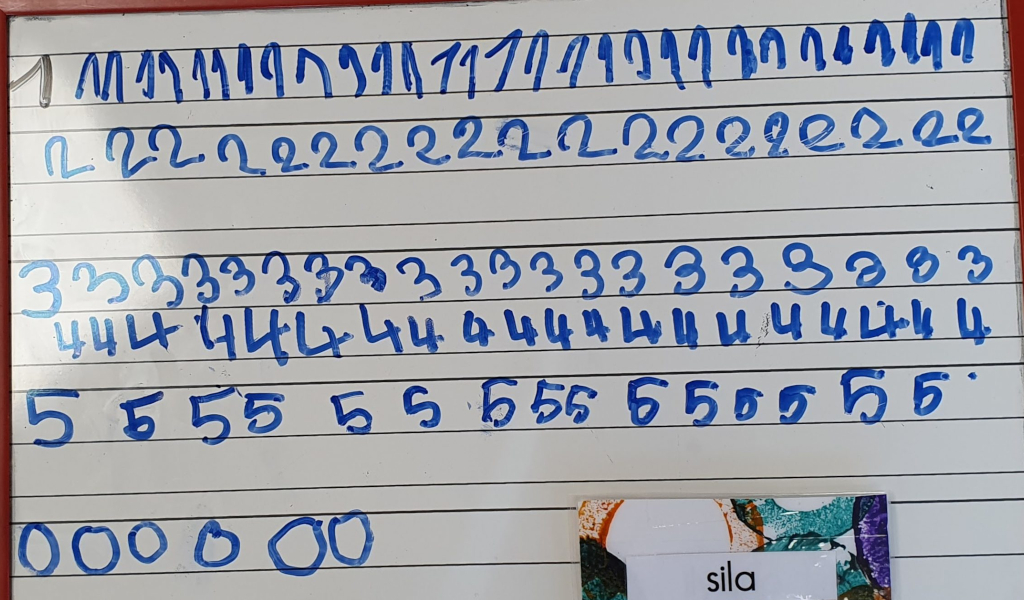 1 1 1 1 1 1 1 1 1 1 1 1 1 1 1 1 1 1 1 1 1 1 1 1 1 1 1 1 1 1 1
2 2 2 2 2 2 2 2 2 2 2 2 2 2 2 2 2 2 2
3 3 3 3 3 3 3 3 3 3 3 3 3 3 3 3 3 3 3 3
4 4 4 4 4 4 4 4 4 4 4 4 4 4 4 4 4 4 4 4
5 5 5 5 5 5 5 5 5 5 5 5 5 5 5
0 0 0 0 0 0
sila